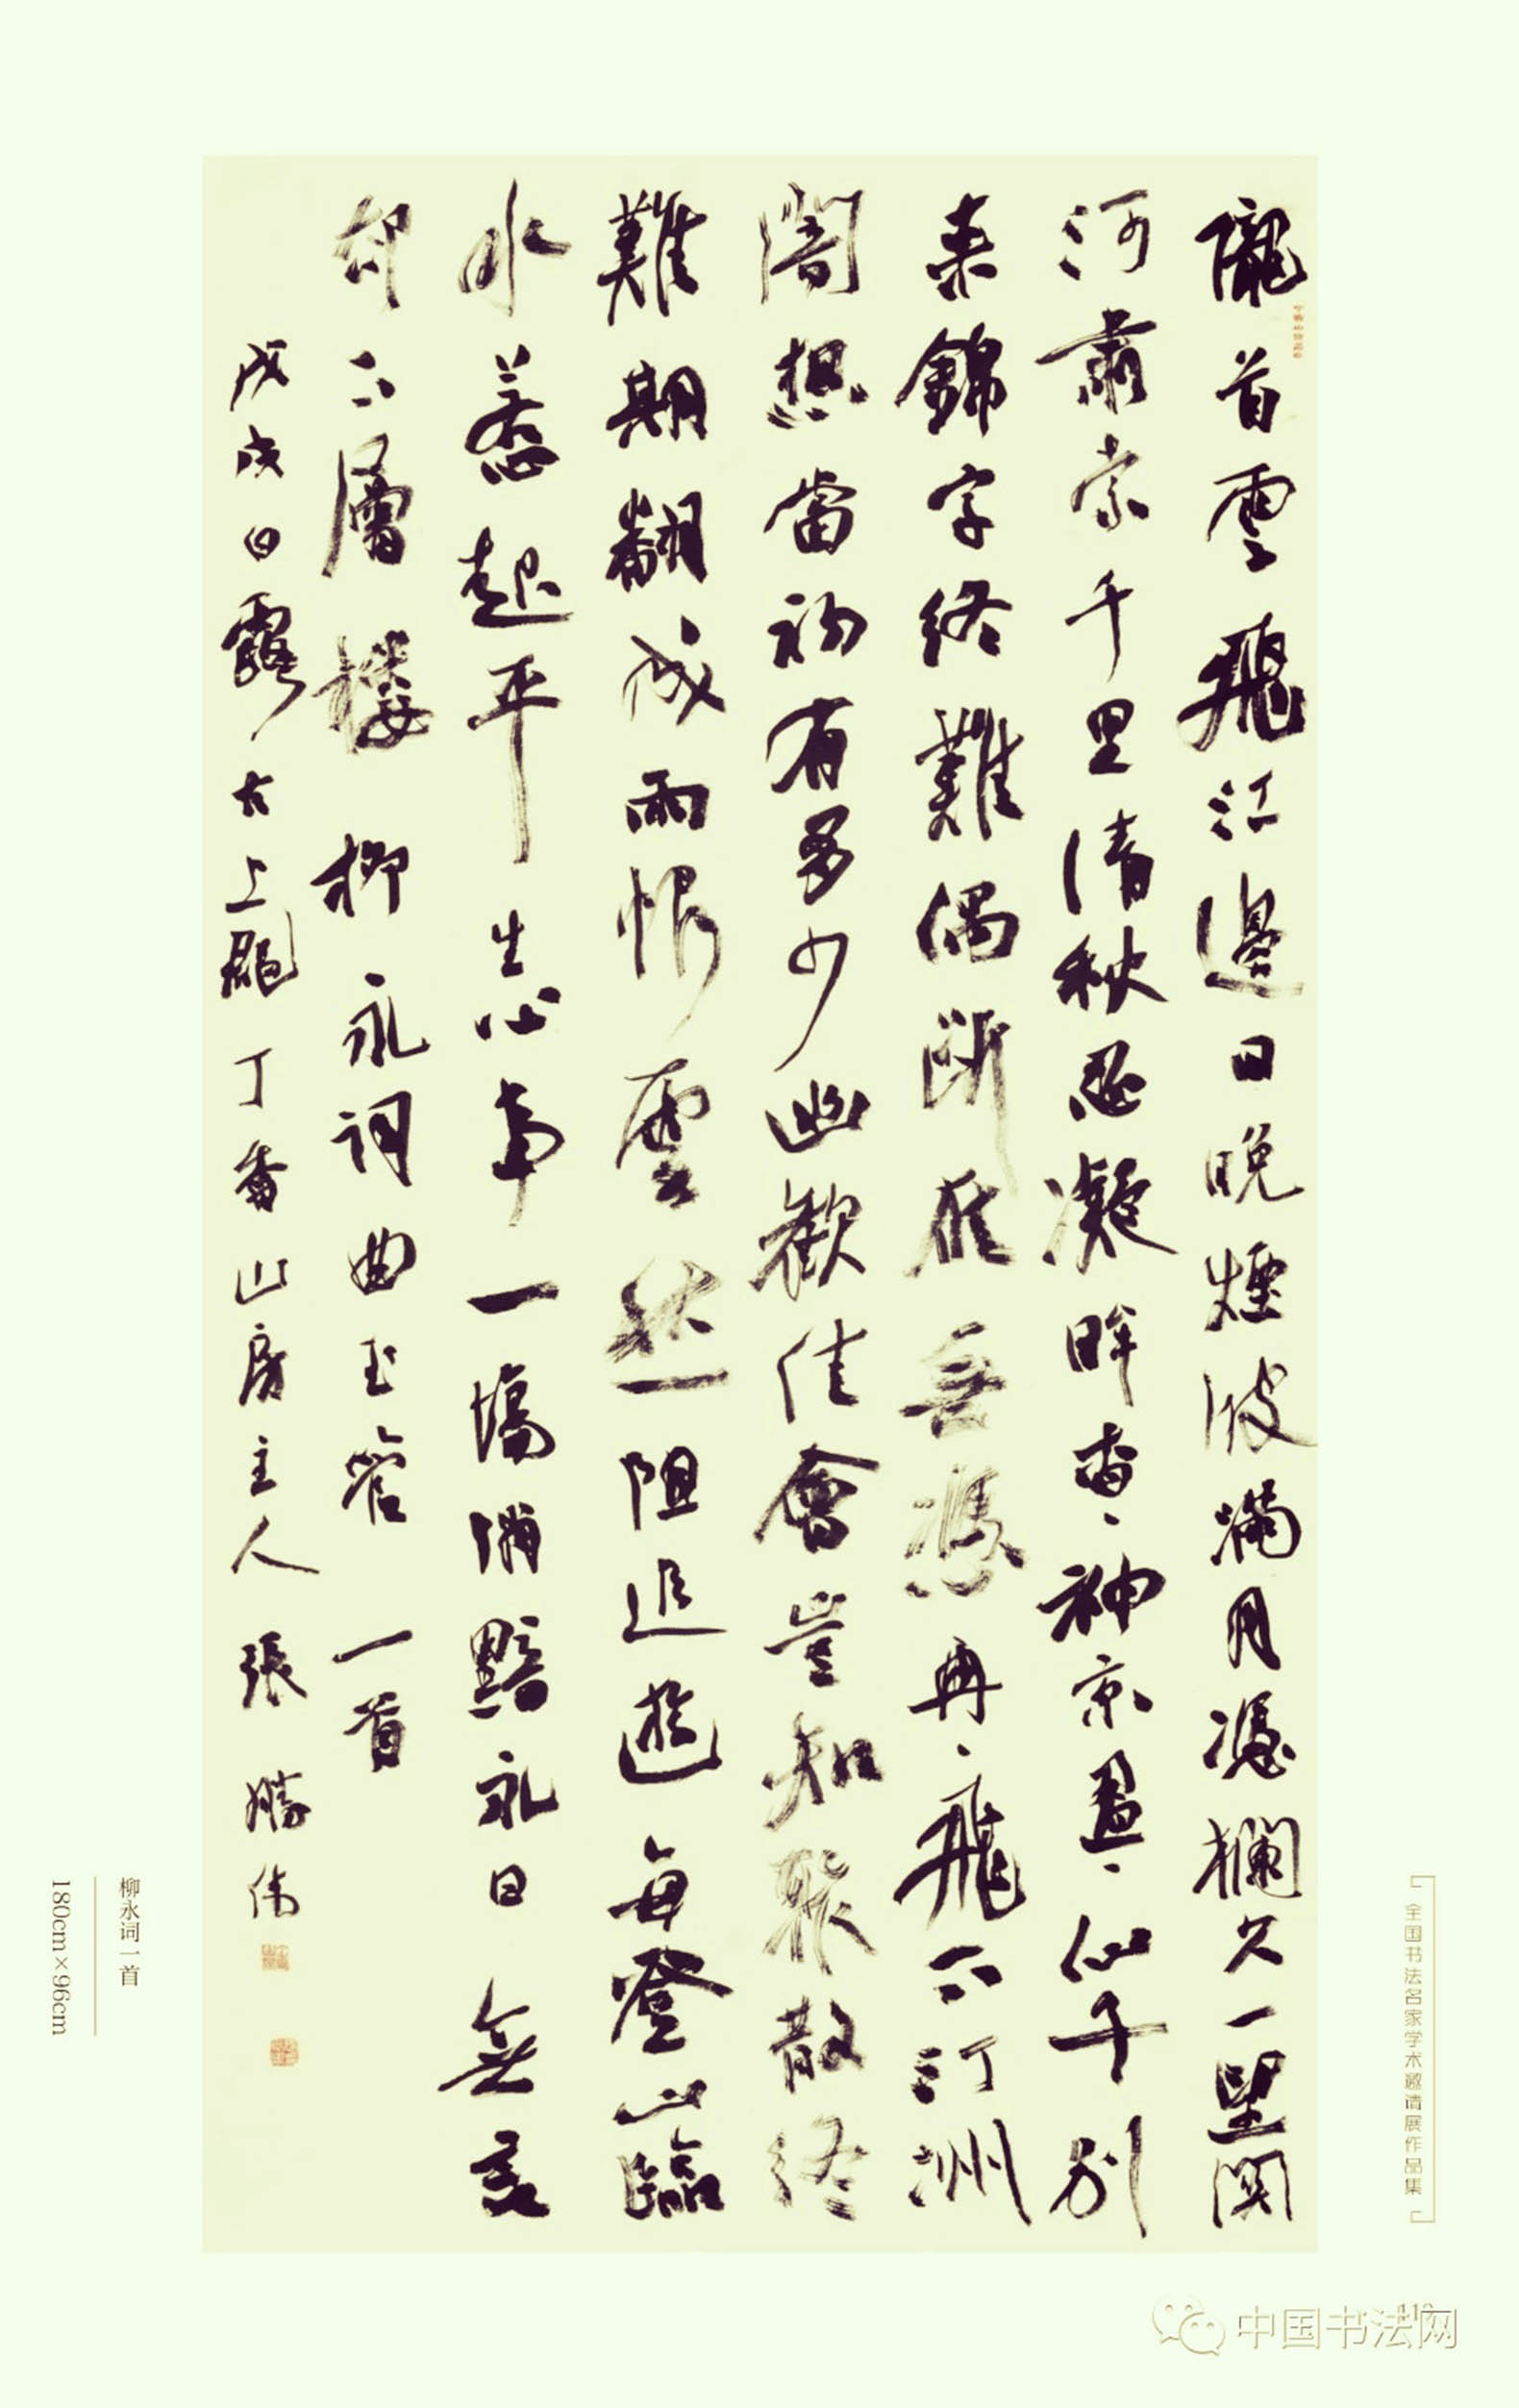 隴首雲飛江邊日晚煙波滿目憑欄久一望関
河肅索千里清秋忍凝眸杳、神京盈、仙子別
来錦字終難偶斷雁無憑冉、飛下汀洲
闇想當初有多少幽歡佳會豈知聚散終
難期翻成雨恨雲愁阻追遊每登山臨
水惹起平生心事一場消黯永日無言
却下層樓 柳永詞曲玉管一首
戊戌白露古上郡丁香山房主人張勝伟
柳永词一首
180cm×96cm
全国书法名家学术邀请展作品集
中国书法网